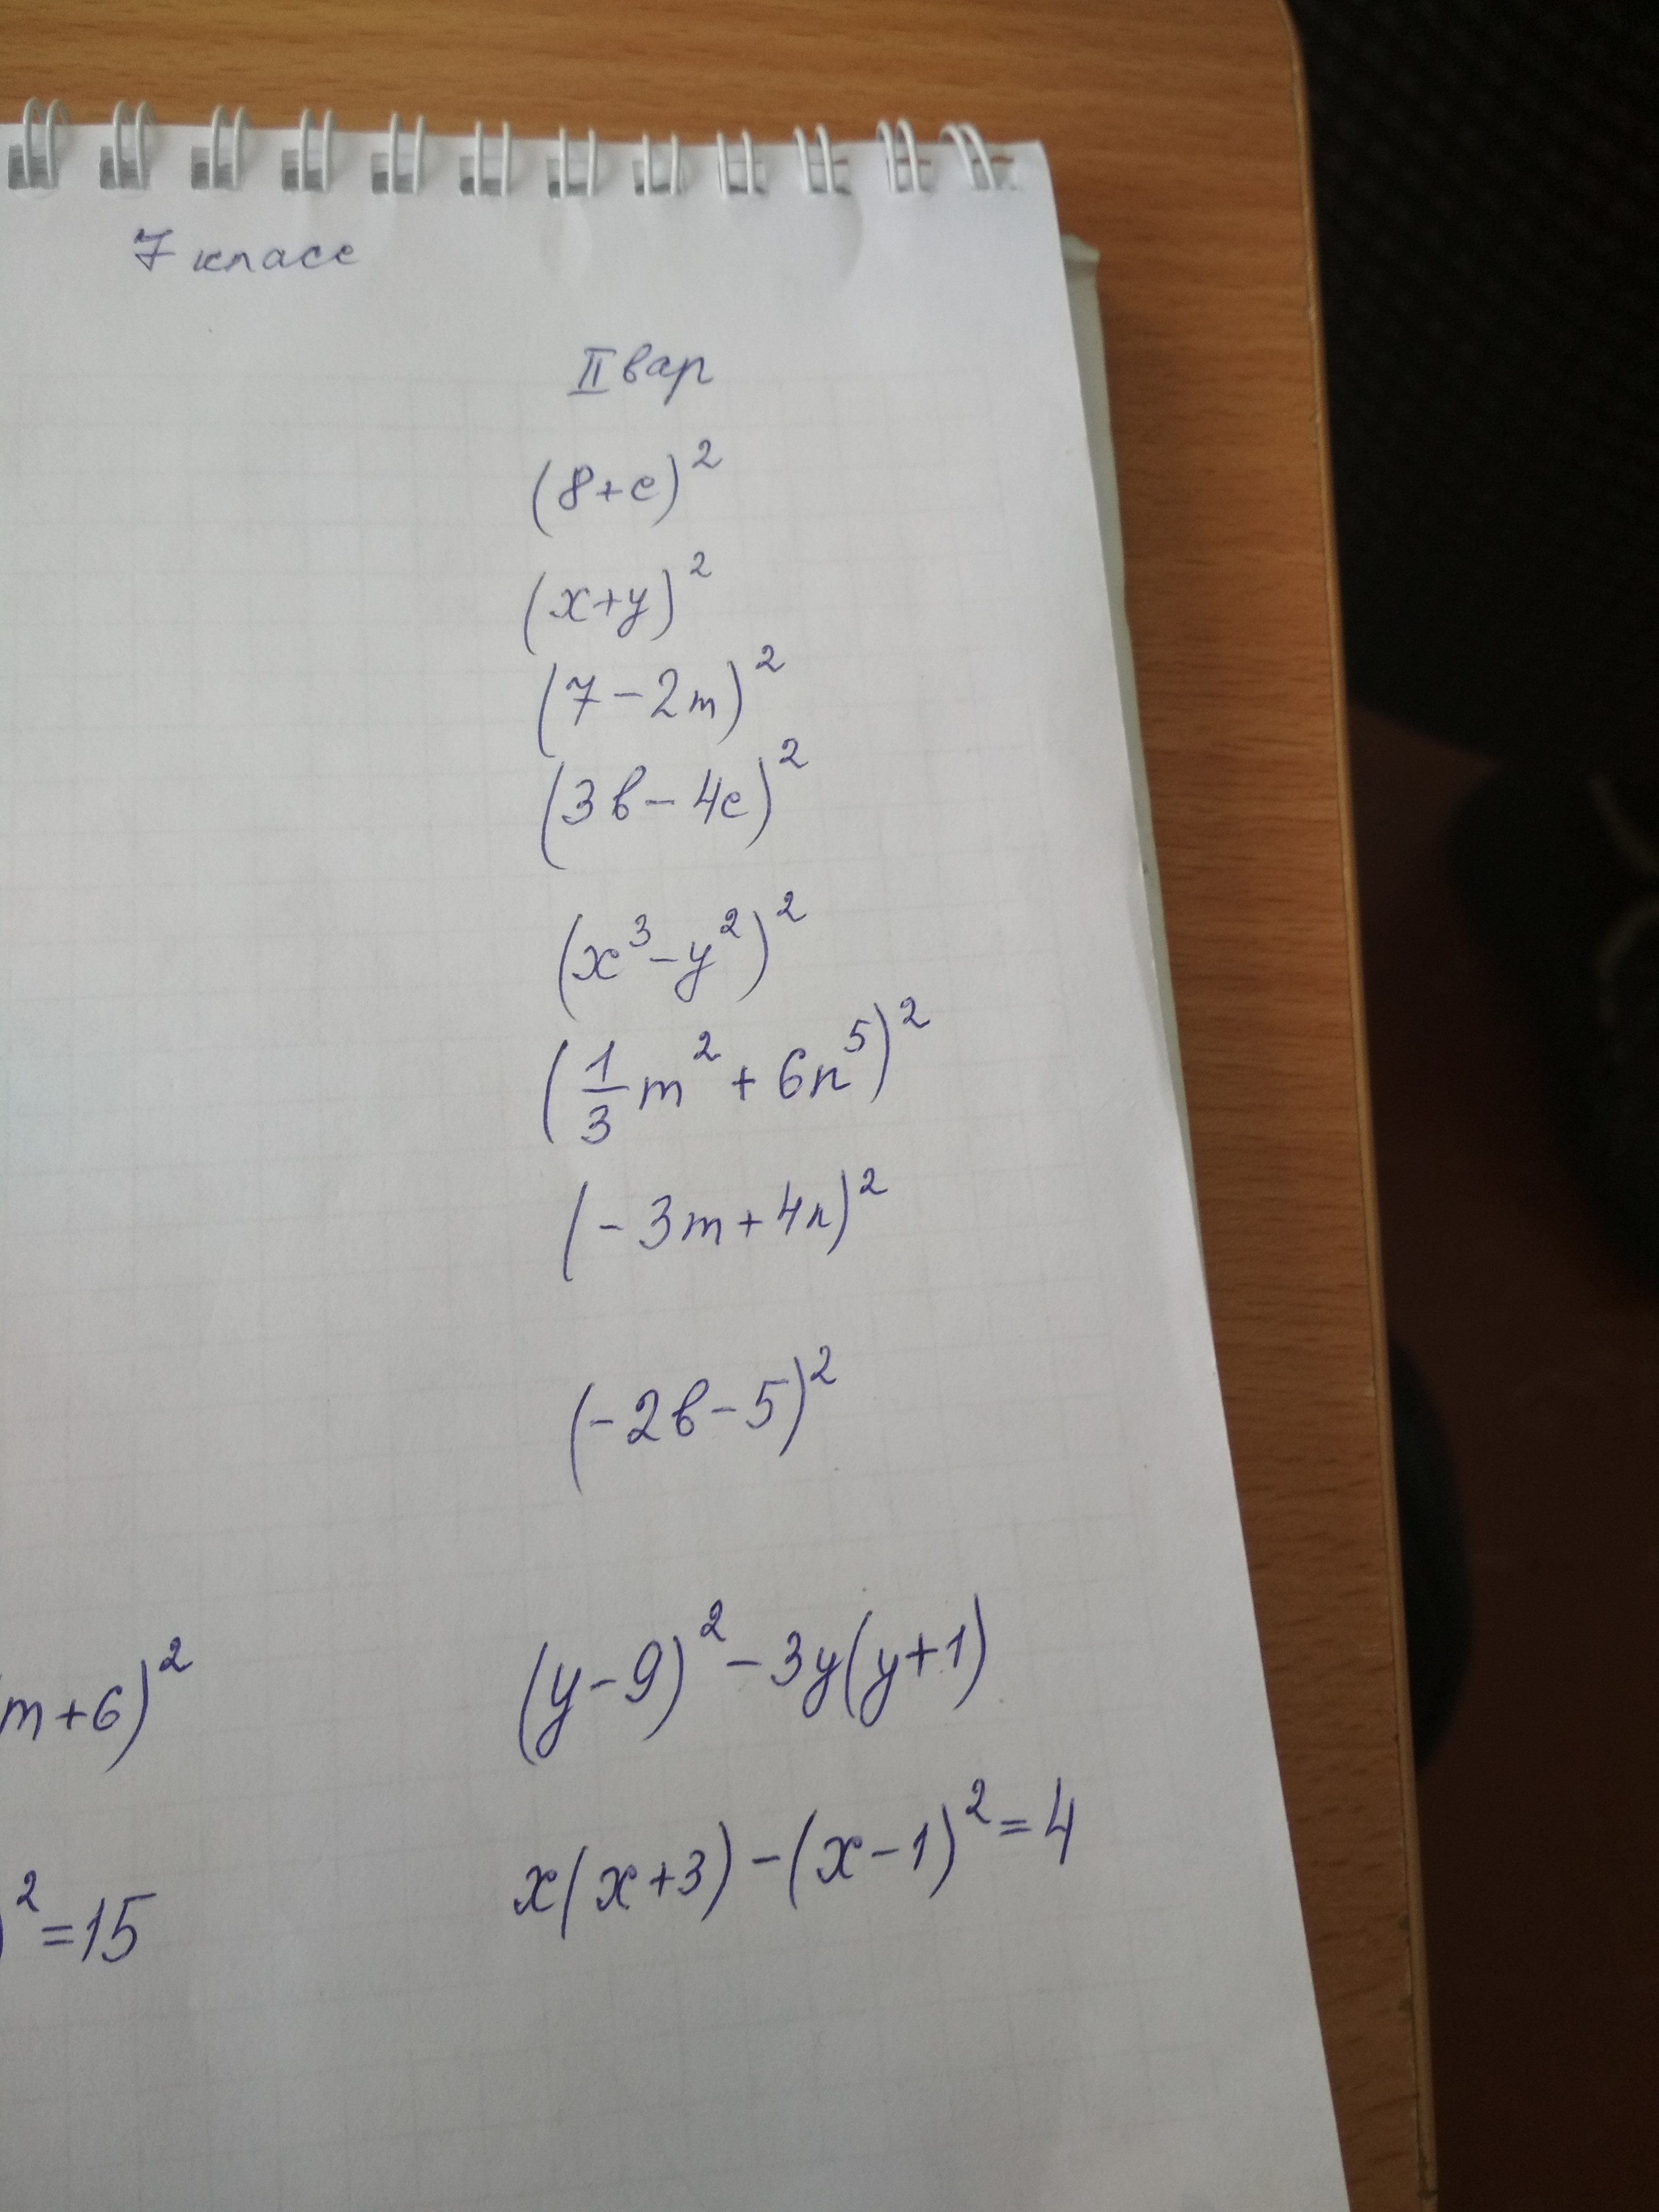 7 класс
II вар
(8+c)²
(x+y)²
(7-2m)²
(3в-4c)²
(x³-y²)²
(1/3 m²+6n⁵)²
(-3m+4n)²
(-2в-5)²
m+6)²
(y-9)²-3y(y+1)
)²=15
x(x+3)-(x-1)²=4